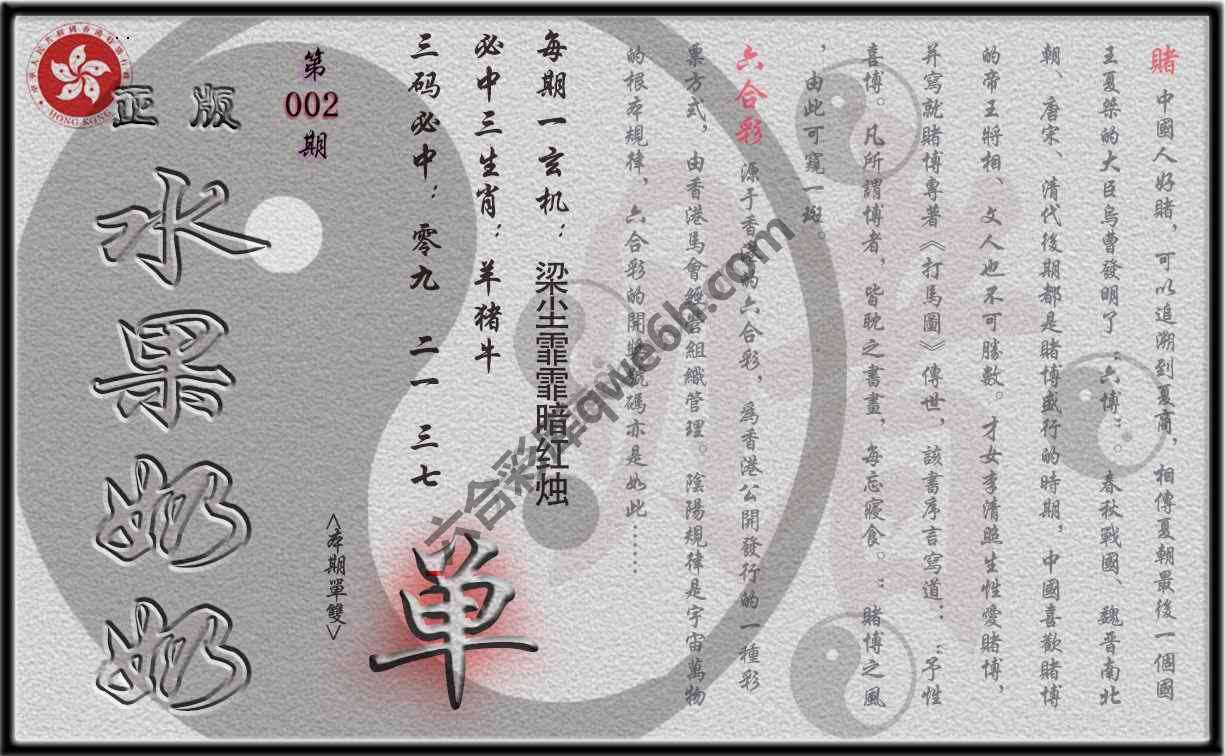 賭 中國人好賭，可以追溯到夏商，相傳夏朝最後一個國
王夏桀的大臣烏曹發明了：六博：。春秋戰國、魏晋南北
朝、唐宋、清代後期都是賭博盛行的時期，中國喜歡賭博
的帝王將相、文人也不可勝數。才女李清照生性愛賭博，
并寫就賭博專著《打馬圖》傳世，該書序言寫道：：予性
喜博。凡所謂博者，皆耽之書畫，每忘寢食。：賭博之風
，由此可窺一斑。
六合彩 源于香港的六合彩，為香港公開發行的一種彩
票方式，由香港馬會經營組織管理。陰陽規律是宇宙萬物
的根本規律、六合彩的開獎號碼亦是如此……
每期一玄机：梁尘霏霏暗红烛
必中三生肖：羊猪牛
三码必中：零九 二一 三七
單
<本期單雙>
第
002
期
正版
水果奶奶
HONG KONG
六合彩库qwe6h.com